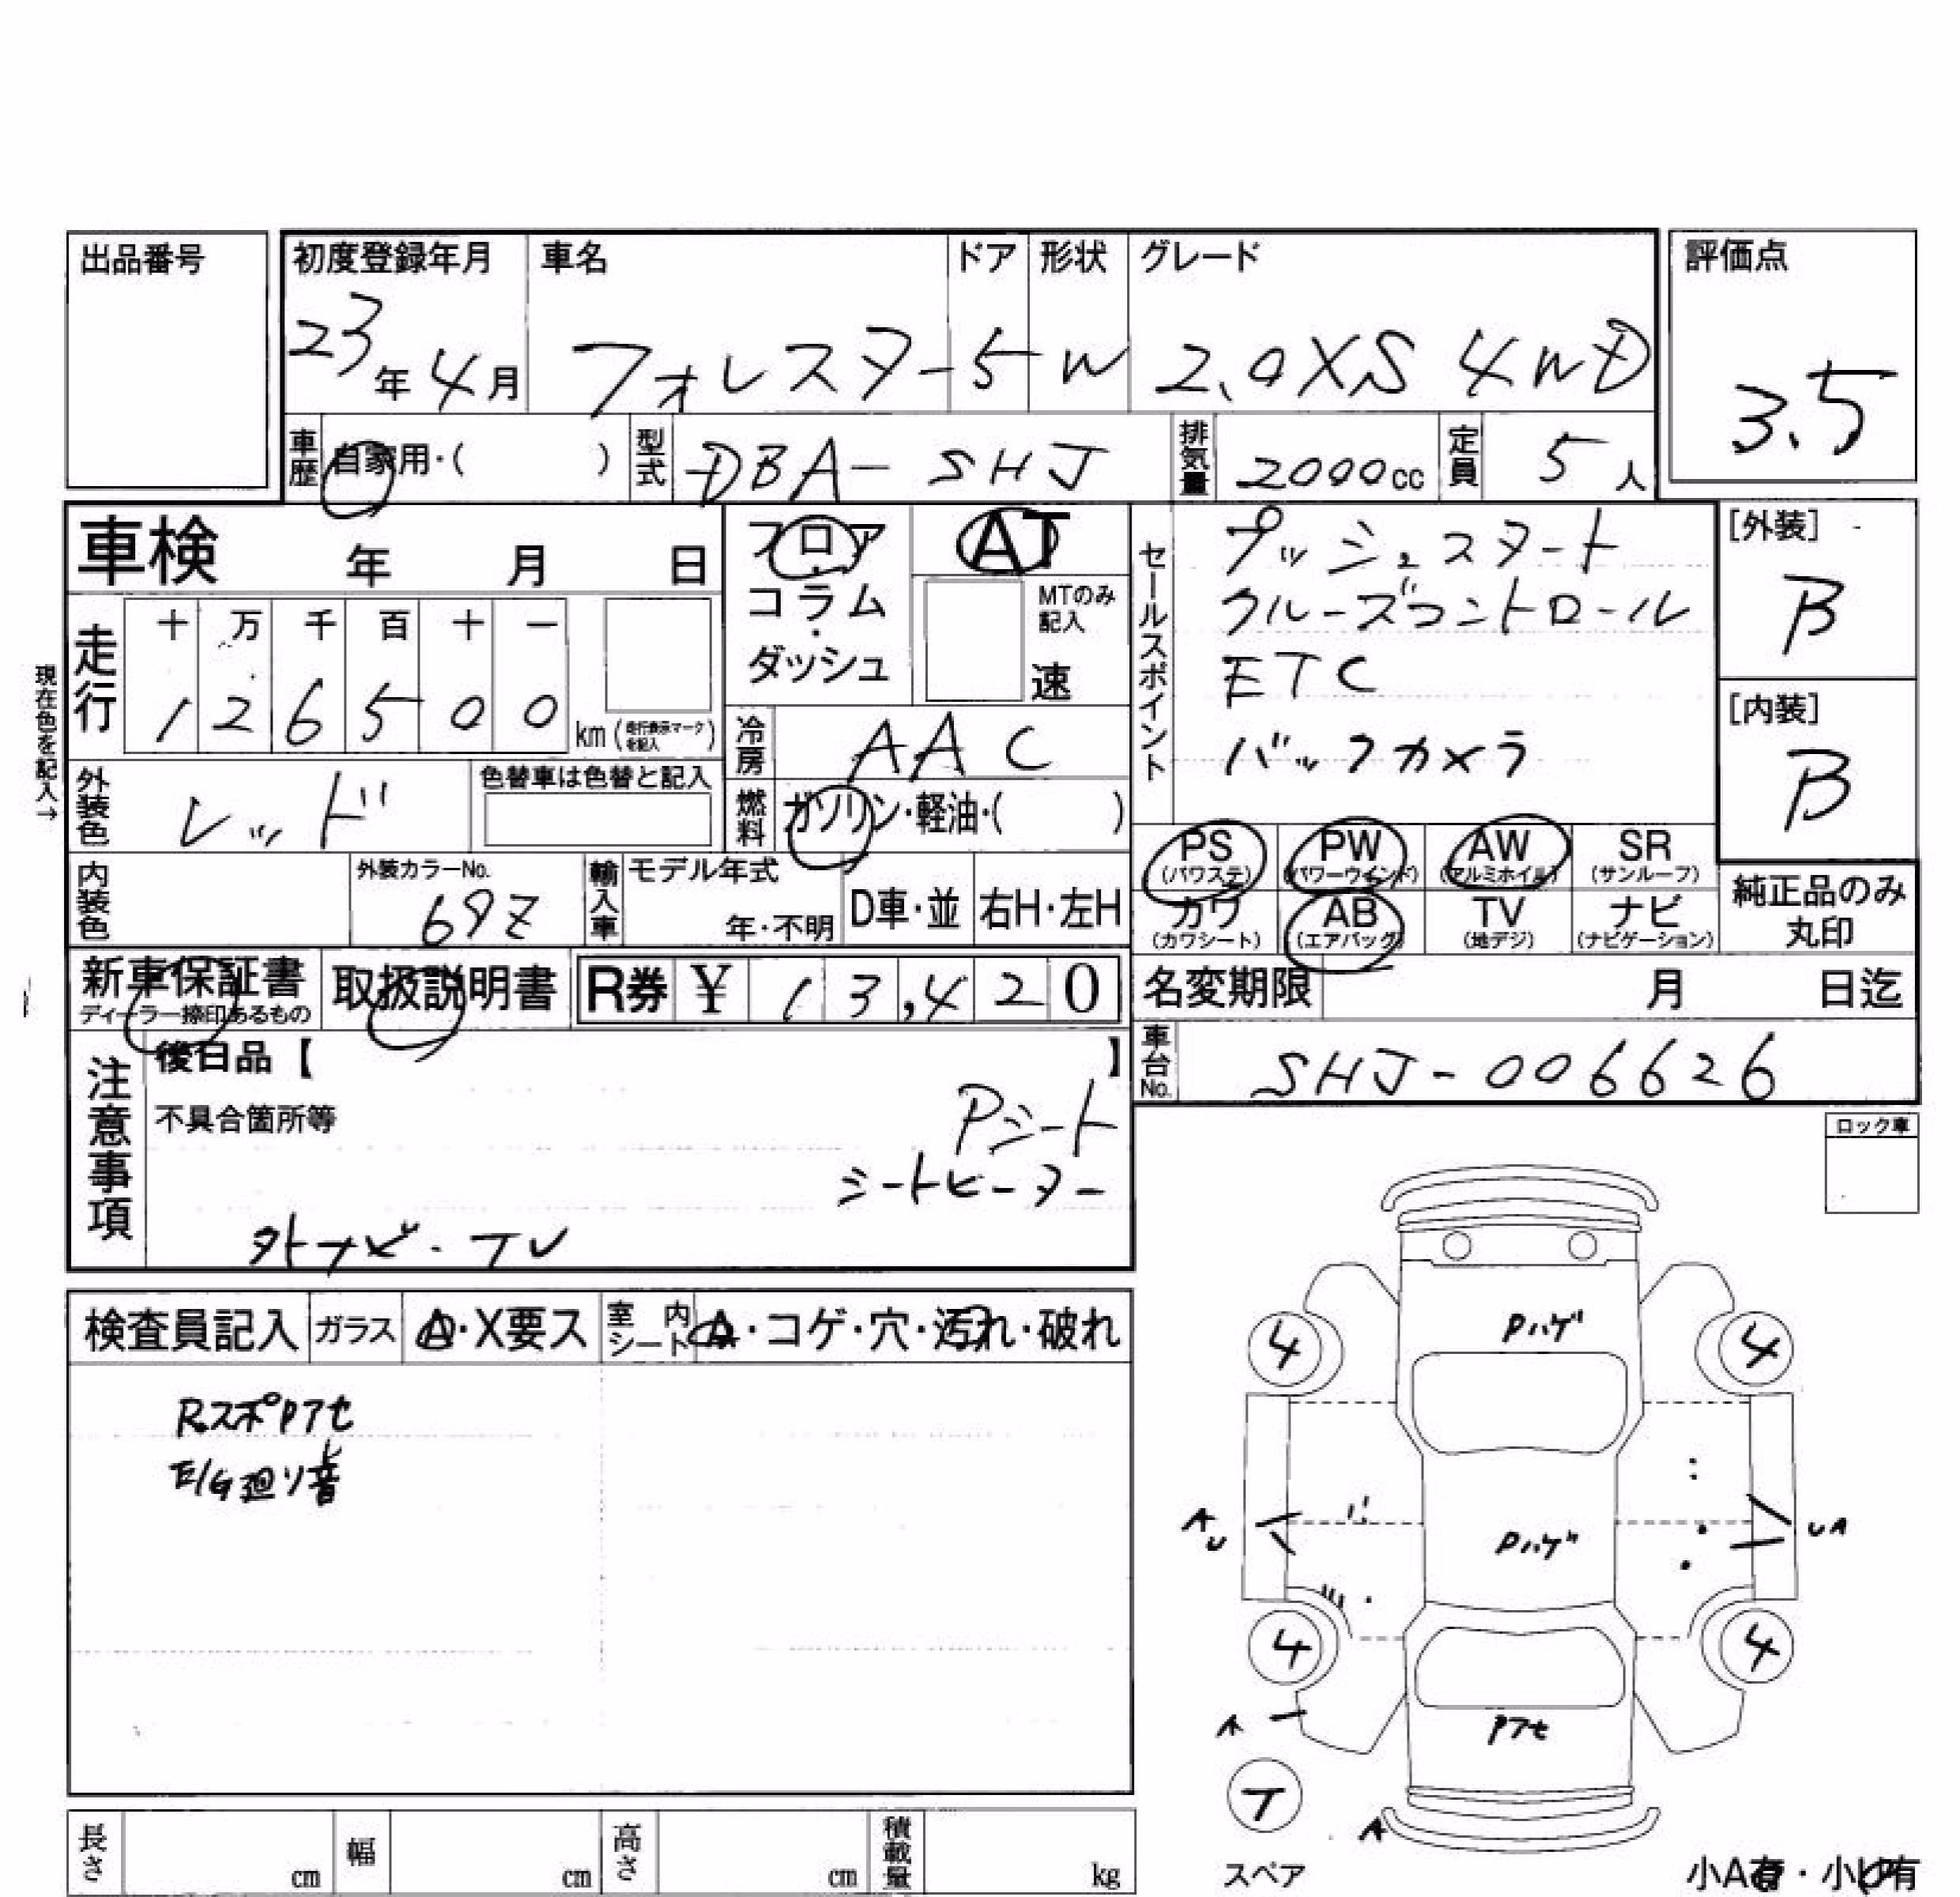 出品番号
初度登録年月 車名 ドア 形状 グレード
評価点
23年4月 フォレスター 5 W 2.0XS 4WD
3.5
車歴 自家用・( ) 型式 DBA-SHJ 排気量 2000cc 定員 5人
車検 年 月 日
フロア・コラム・ダッシュ
AT
MTのみ記入
速
セールスポイント
プッシュスタート
クルーズコントロール
ETC
バックカメラ
[外装]
B
[内装]
B
現在色を記入→
走行 十 万 千 百 十 一
1 2 6 5 0 0 km (走行表示マークを記入)
冷房 AAC
外装色 レッド 色替車は色替と記入
燃料 ガソリン・軽油・( )
PS (パワステ) PW (パワーウインド) AW (アルミホイル) SR (サンルーフ)
カワ (カワシート) AB (エアバッグ) TV (地デジ) ナビ (ナビゲーション)
純正品のみ丸印
内装色 外装カラーNo. 69Z 輸入車 モデル年式 年・不明 D車・並 右H・左H
新車保証書 ディーラー捺印あるもの 取扱説明書 R券 ¥ 13,420
名変期限 月 日迄
車台No. SHJ-006626
注意事項
後日品【 】
不具合箇所等
Pシート
シートヒーター
外ナビ・TV
ロック車
検査員記入 ガラス A・X要ス 室内シート A・コゲ・穴・汚れ・破れ
RスポPアセ
E/G廻り音
Pハゲ
4 4
A U
Pハゲ
U A
4 4
A
Pアセ
T
スペア
A
小A有・小U有
長さ cm 幅 cm 高さ cm 積載量 kg